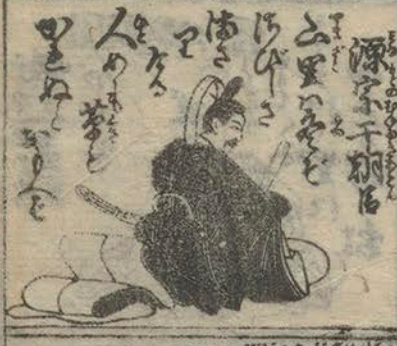 源宗于朝臣
山里ハ冬ぞ
さびしさ
まさ
り
ける
人めも草も
かれぬと
おもへば